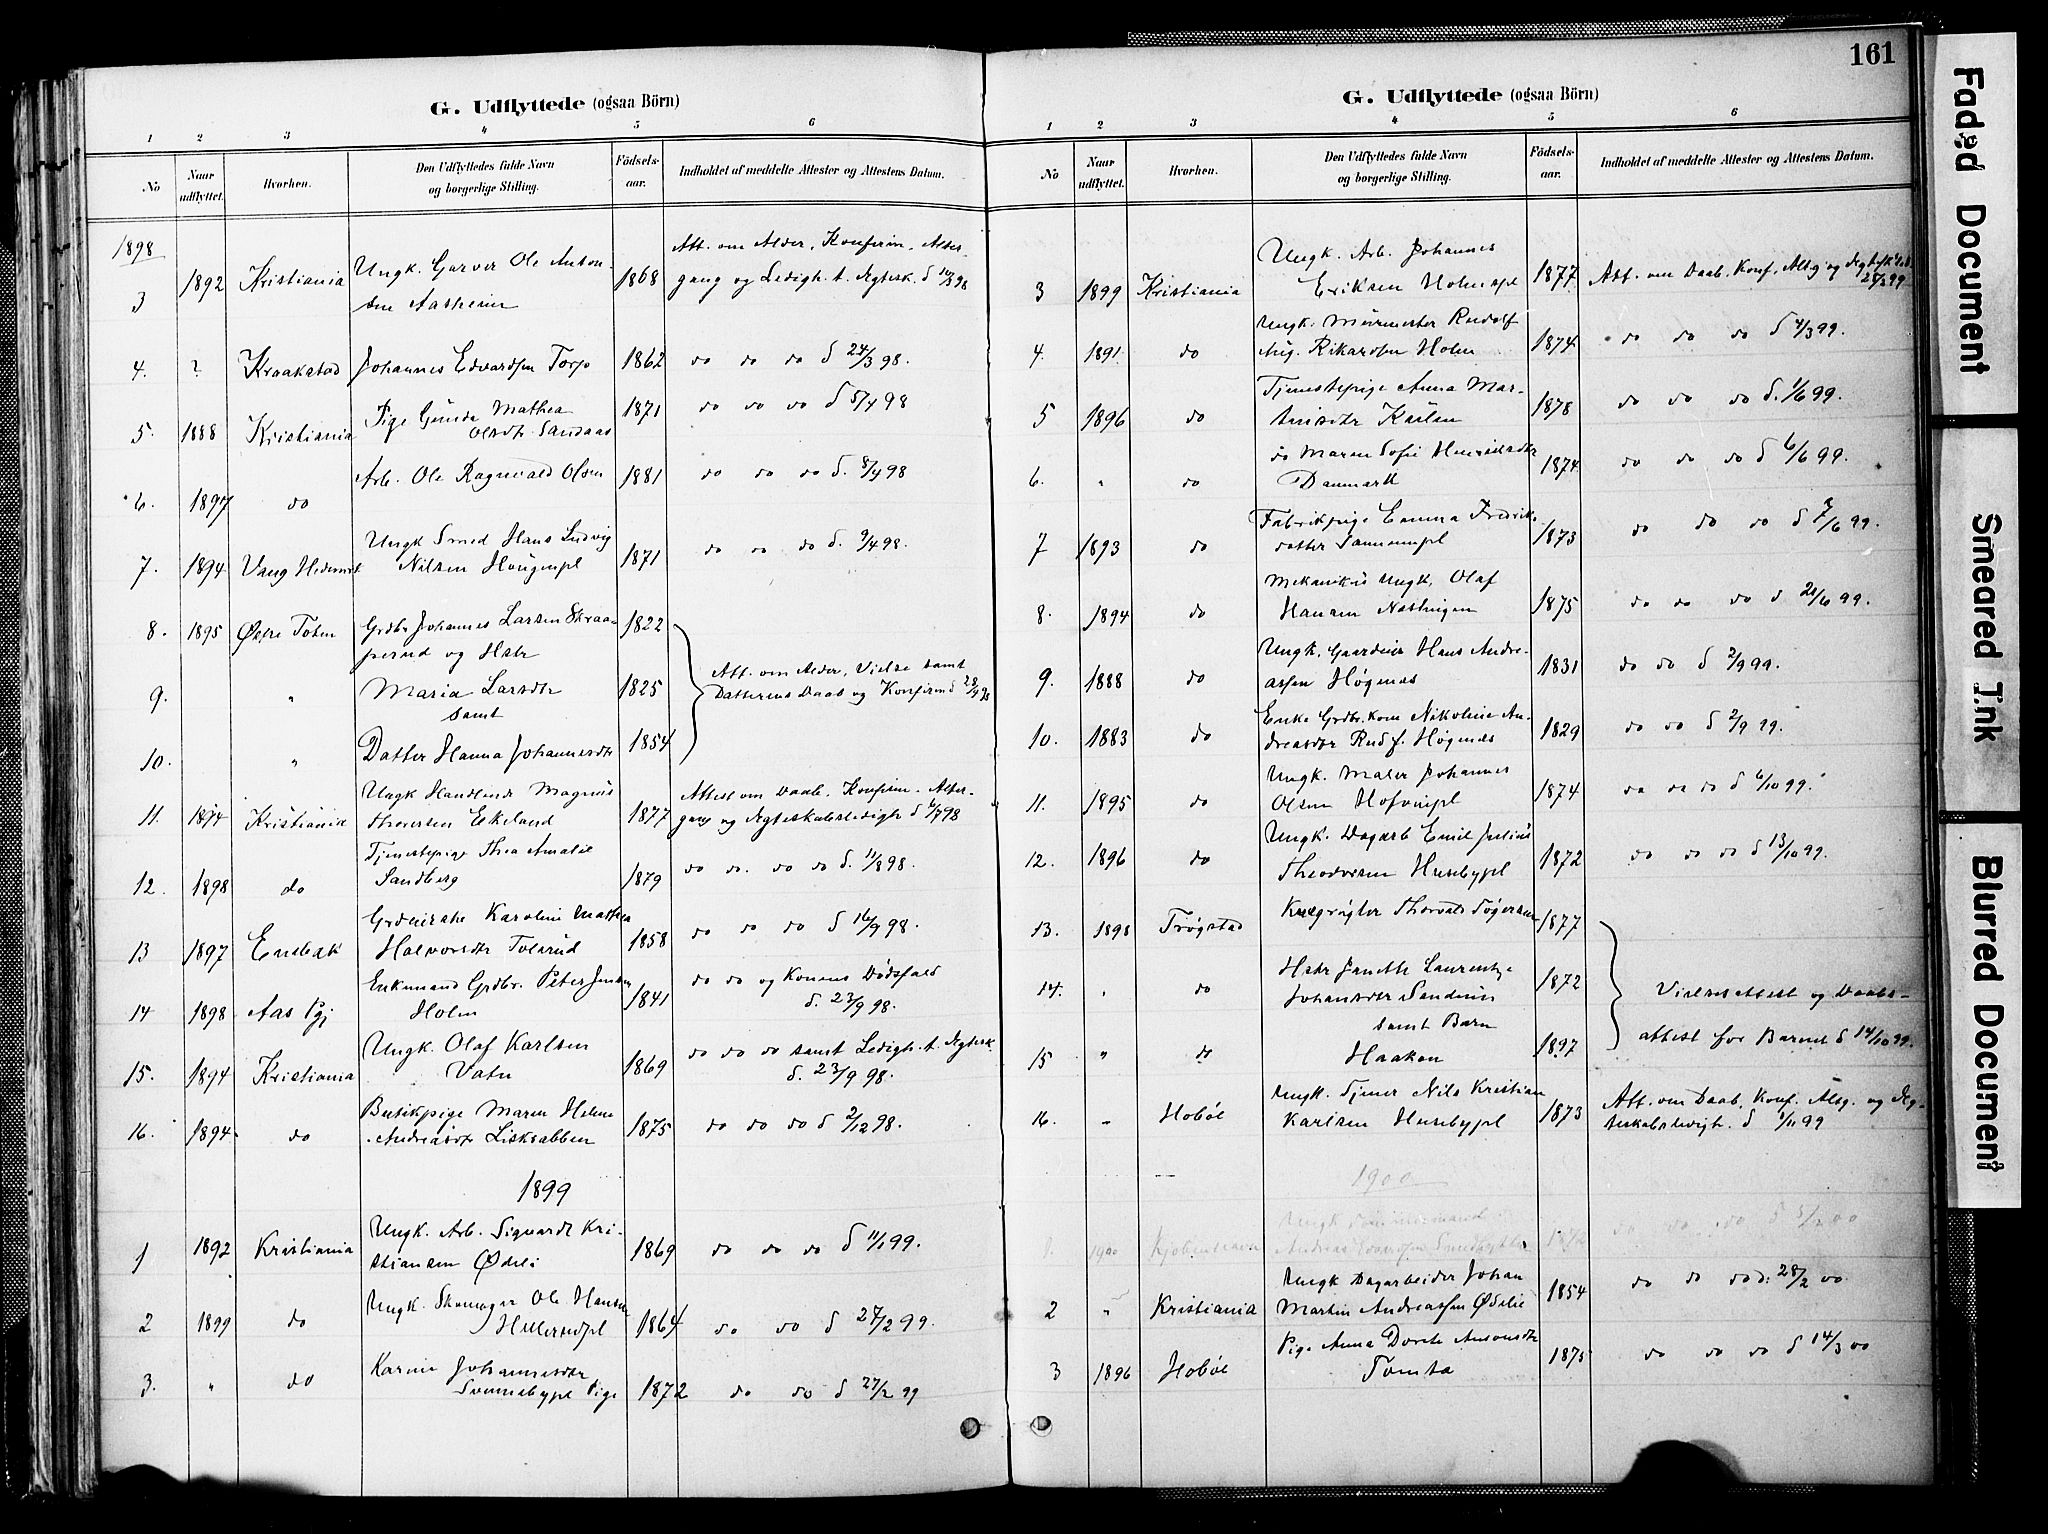 G. Udflyttede (ogsaa Börn)
1 2 3 4 5 6
No
Naar udflyttet.
Hvorhen.
Den Udflyttedes fulde Navn og borgerlige Stilling.
Födsels-aar.
Indholdet af meddelte Attester og Attestens Datum.
1898
3 1892 Kristiania Ungk. Garver Ole Anton- 1868 Att. om Alder, Konfirm. Alter-
sen Aasheim gang og Ledigh. t. Ægtesk. d 14/3 98
4. ? Kraakstad Johannes Edvardsen Torp 1862 do do do d 24/3 98.
5. 1888 Kristiania Pige Gunda Mathea 1871 do do do d 5/4 98
Olsdtr Sandaas
6. 1897 do Arb. Ole Ragnvald Olsen 1881 do do do d. 8/4 98
7. 1894 Vang Hedemark Ungk Smed Hans Ludvig 1871 do do do d. 9/4 98.
Nilsen Haugenpl
8. 1895 Østre Toten Grdbr Johannes Larsen Skraa- 1822
perud og Hstr
9. " Maria Larsdtr 1825 Att. om Alder, Vielse samt
samt Datterens Daab og Konfirm d 28/4 98
10. " Datter Hanna Johannesdtr 1854
11. 1894 Kristiania Ungk Handlende Magnus 1877 Attest om Daab, Konfirm. Alter-
Thoresen Ekeland gang og Ægteskabsledigh d 6/7 98
12. 1898 do Tjenestepige Thea Amalie 1879 do do. do do d. 11/8 98.
Sandberg
13 1897 Enebak Karoline Mathea 1858 do do do d 16/9 98.
Halvorsdtr Tolsrud
14 1898 Aas Pgj Enkemand Grdbr. Peter Jensen 1841 do do og Konens Dødsfald
Holm d. 23/9 98.
15. 1894 Kristiania Ungk. Olaf Karlsen 1869 do do do samt Ledigh. t. Ægtesk.
Vatn d. 23/9 98.
16. 1894 do Butikpige Maren Helene 1875 do do do d 2/12 98.
Andreasdtr
1899
1 1892 Kristiania Ungk. Arb. Sigvardt Kri- 1869 do do do d 11/1 99.
stiansen Ødeli
2 1899 do Ungk. Skomager Ole Hansen 1864 do do d 27/2 99.
Hellerudpl
3. " do Karine Johannesdtr 1872 do do d 27/2 99
Sonnebypl Pige
161
G. Udflyttede (ogsaa Börn)
1 2 3 4 5 6
No
Naar udflyttet.
Hvorhen.
Den Udflyttedes fulde Navn og borgerlige Stilling.
Födsels-aar.
Indholdet af meddelte Attester og Attestens Datum.
3 1899 Kristiania Ungk. Arb. Johannes 1877 Att. om Daab, Konf. Altg og
Eriksen Holmepl 25/3 99
4. 1891. do Ungk. Murmester Rudolf 1874 do do do d 4/3 99.
Aug. Rikardsen Holm
5 1896 do Tjenestepige Anna Mar- 1878 do do do d. 1/6 99.
tinsdtr
6. " do do Maren Sofie Henriksdtr 1874 do do do d 6/6 99.
Danmark
7 1893 do Fabrikpige Emma Fredriks- 1873 do do do d 7/6 99.
datter
8. 1894 do Mekanikus Ungk. Olaf 1875 do do do d 21/6 99.
Hansen
9. 1888 do Ungk. Hans Andre- 1831 do do d 2/9 99.
assen Høgenæs
10. 1883 do Enke Grdbr.kone Nikoline An- 1829 do do d 2/9 99.
dreasdtr Rud f. Høgenæs
11. 1895 do Ungk. Maler Johannes 1874 do do do d 6/10 99.
Olsen
12. 1896 do Ungk. Dagarb Emil Julius 1872 do do do d 13/10 99.
Theodorsen Husebypl
13. 1898 Trøgstad Thorvald 1877
14. " do Hstr Janette Laurentze 1872 Vielsesattest og Daabs-
Johansdtr
samt Barn
15 " do Haakon 1897 attest for Barnet d 14/10 99.
16. " Hobøl Ungk. Tjener Nils Kristian 1873 Att. om Daab, Konf. Altg. og Æg-
Karlsen Husebypl teskabsledigh. d 1/11 99
1900
1. 1900 Kjøbenhavn Ungk do do do d 00
Andreas
2 " Kristiania Ungk Dagarbeider Johan 1854 do do do d. 28/2 00.
Martin Andreassen Ødelie
3 1896 Hobøl Pige Anna Dorete Antonsdtr 1875 do do do d 14/3 00
Tomta
Faded Document
Smeared Ink
Blurred Document